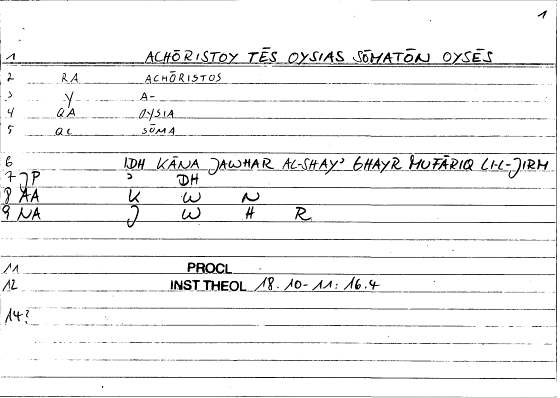 1
1 ACHŌRISTOY TĒS OYSIAS SŌMATŌN OYSĒS
2 RA ACHŌRISTOS
3 Y A-
4 QA OYSIA
5 QC SŌMA
6 IDH KĀNA JAWHAR AL-SHAYʾ GHAYR MUFĀRIQ LI-L-JIRM
7 JP ʾ DH
8 AA K W N
9 NA J W H R
11 PROCL
12 INST THEOL 18.10-11: 16.4
14?